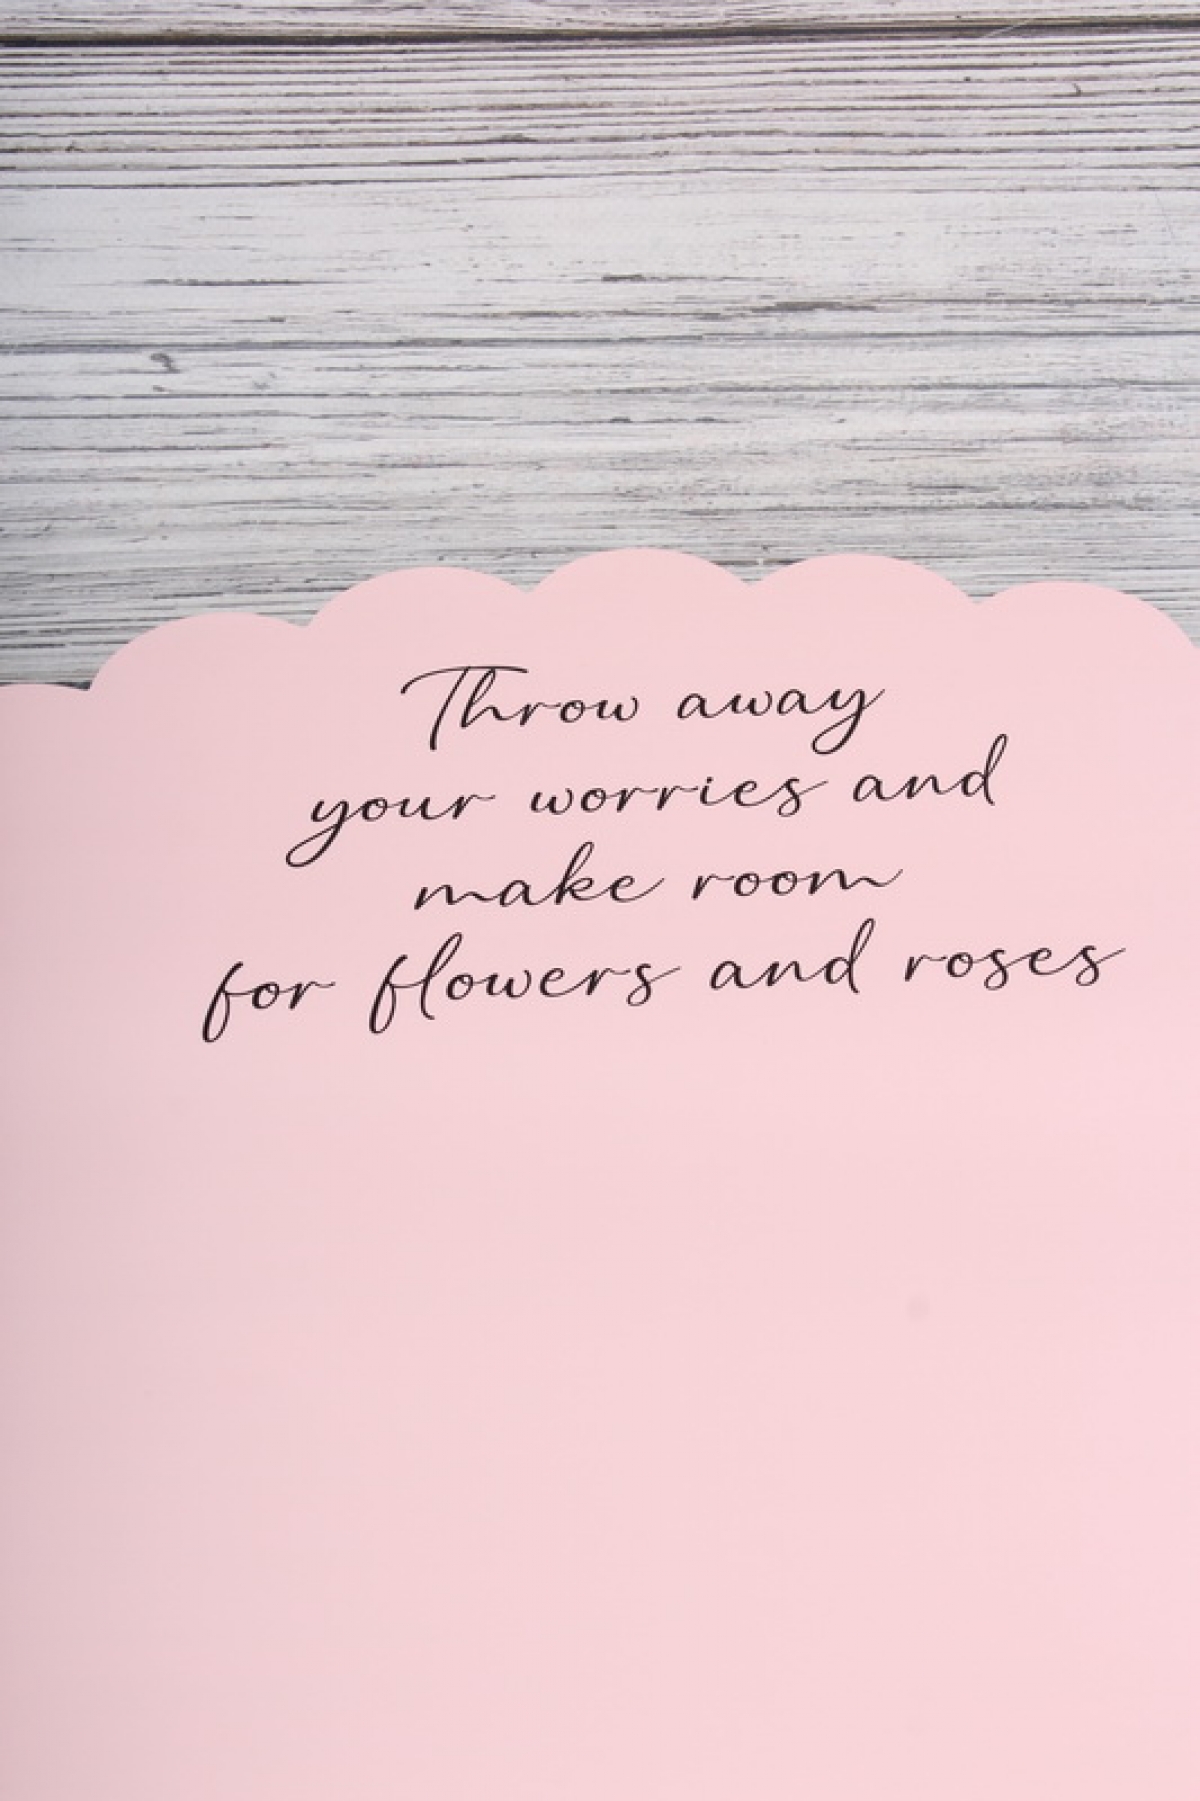 Throw away
your worries and
make room
for flowers and roses